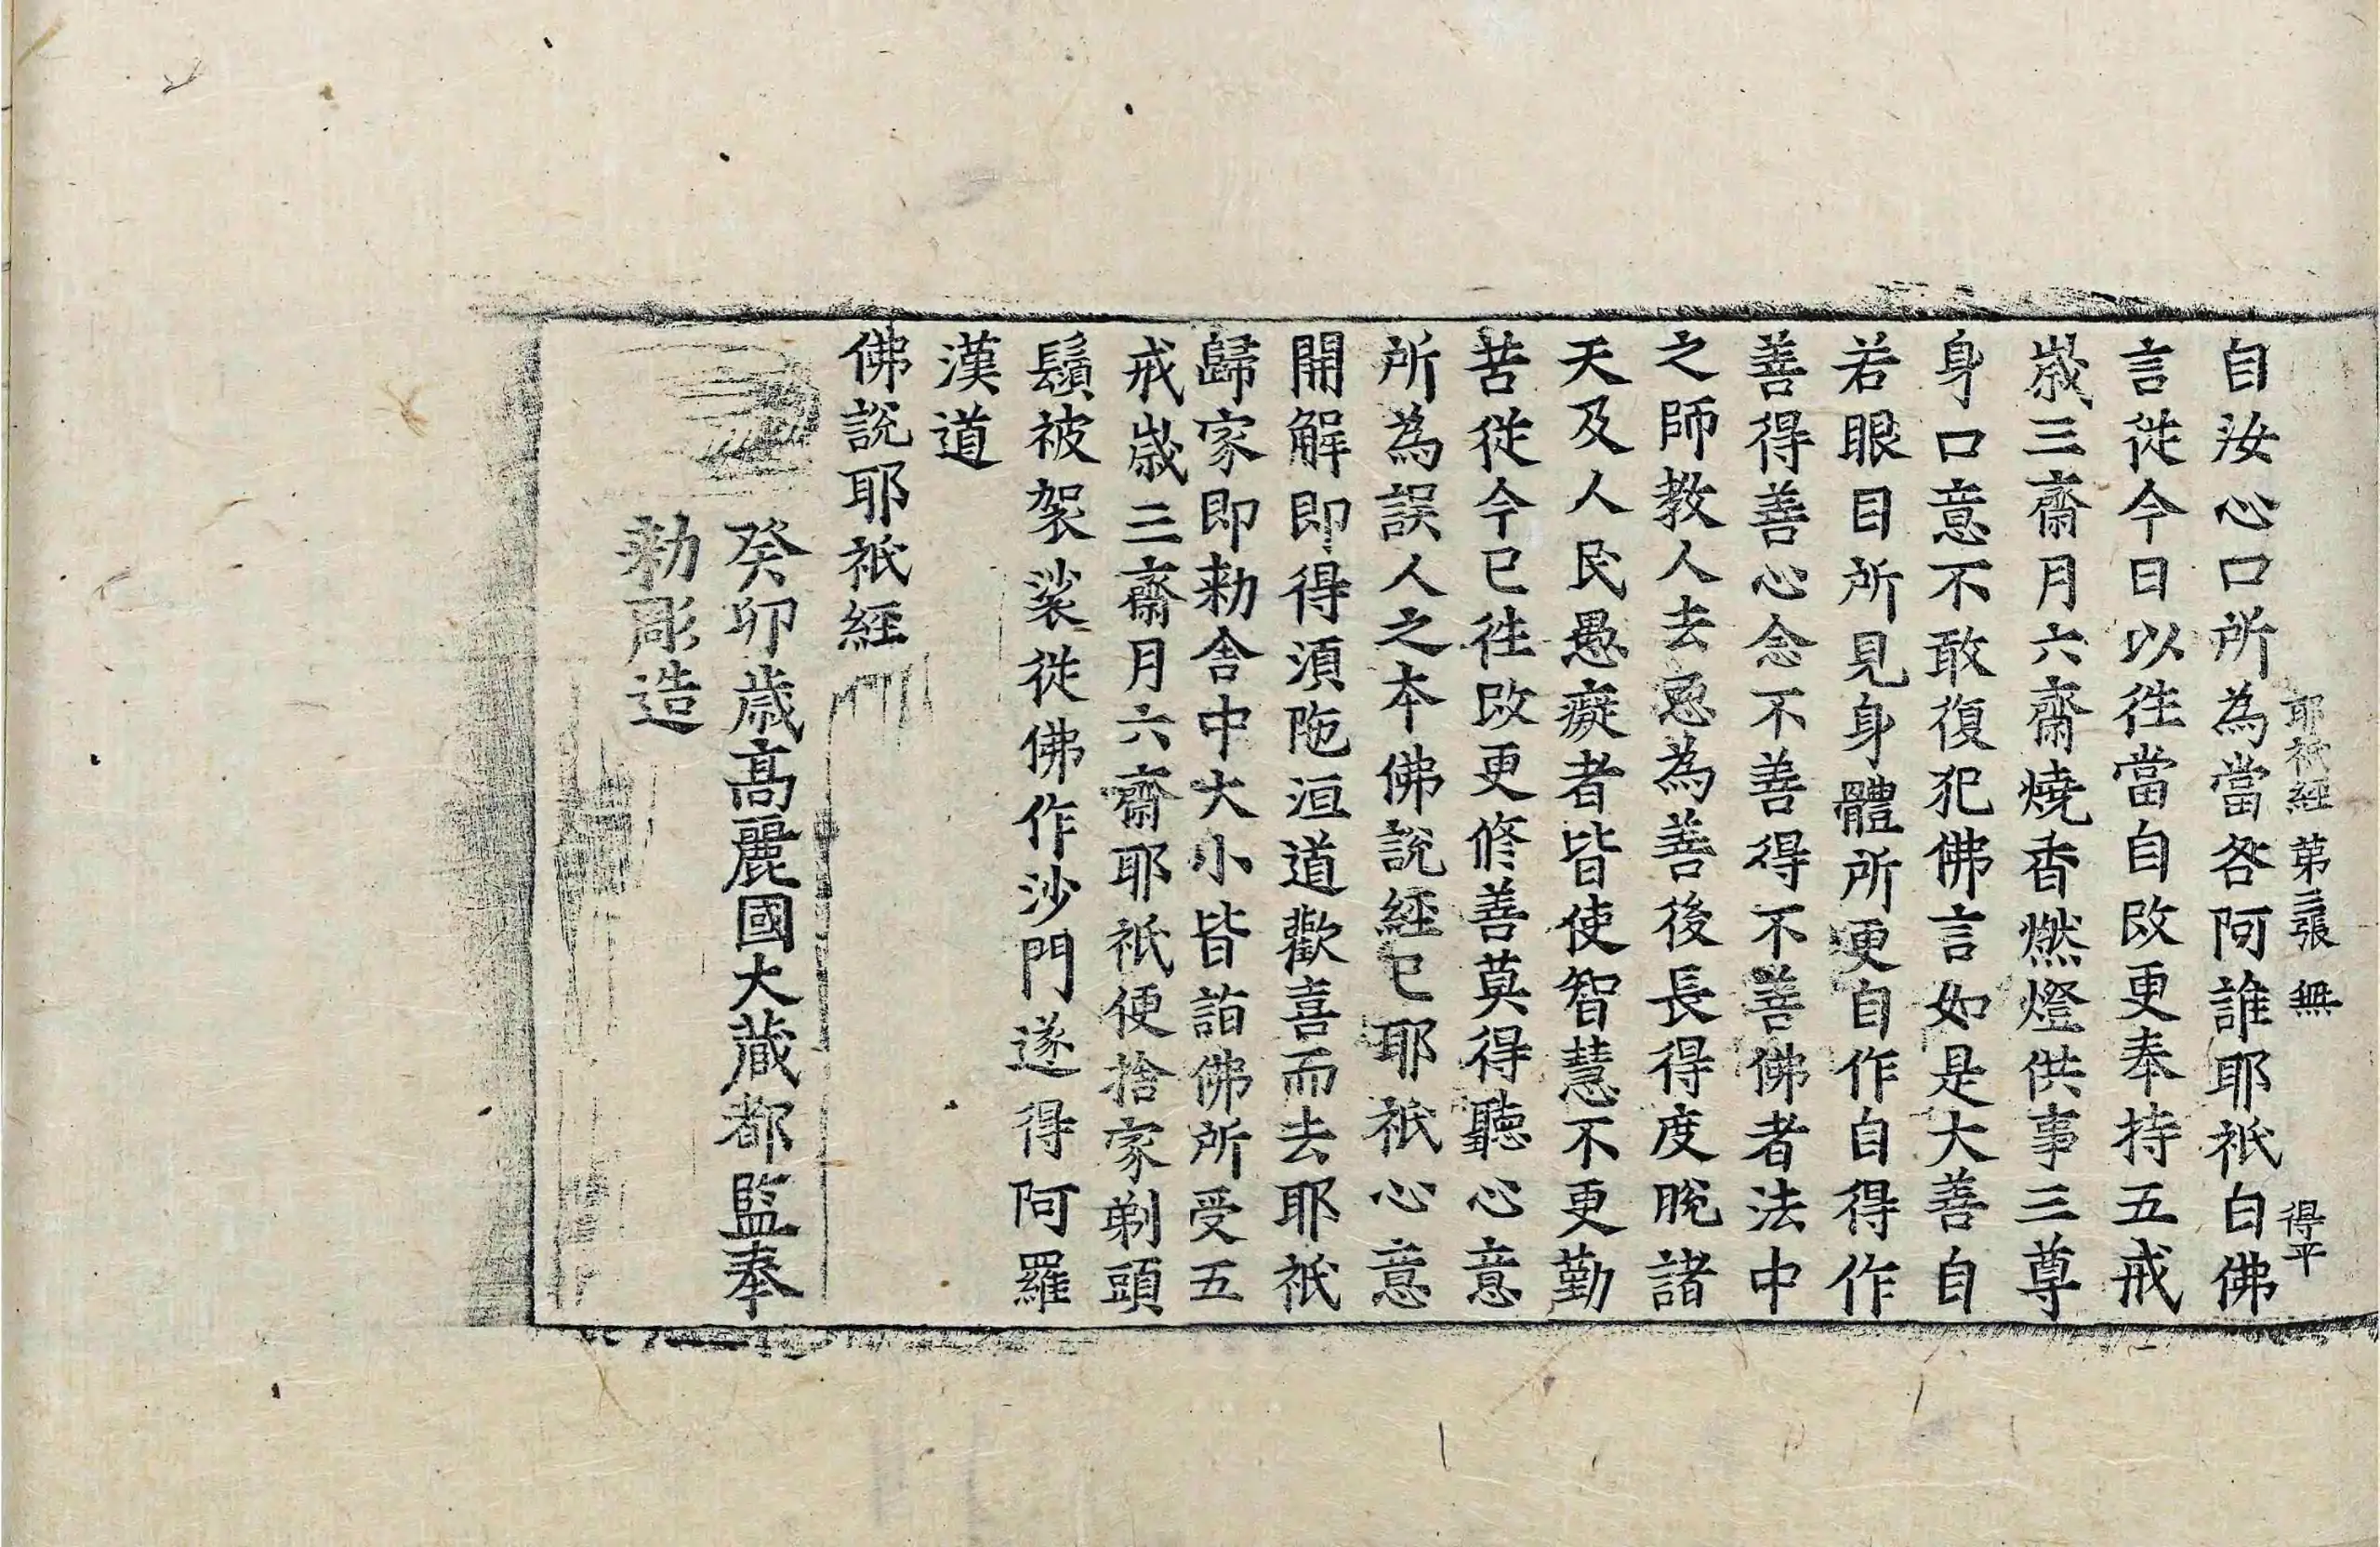 耶祇經 第三張 無 得平
自汝心口所為當咎阿誰耶祇白佛
言從今日以徃當自改更奉持五戒
歲三齋月六齋燒香燃燈供事三尊
身口意不敢復犯佛言如是大善自
若眼目所見身體所更自作自得作
善得善心念不善得不善佛者法中
之師教人去惡為善後長得度脫諸
天及人民愚癡者皆使智慧不更勤
苦從今已徃改更修善莫得聽心意
所為誤人之本佛說經已耶祇心意
開解即得湏陁洹道歡喜而去耶祇
歸家即勑舍中大小皆詣佛所受五
戒歲三齋月六齋耶祇便捨家剃頭
鬚被袈裟從佛作沙門遂得阿羅
漢道
佛說耶祇經
癸卯歲高麗國大藏都監奉
勑彫造